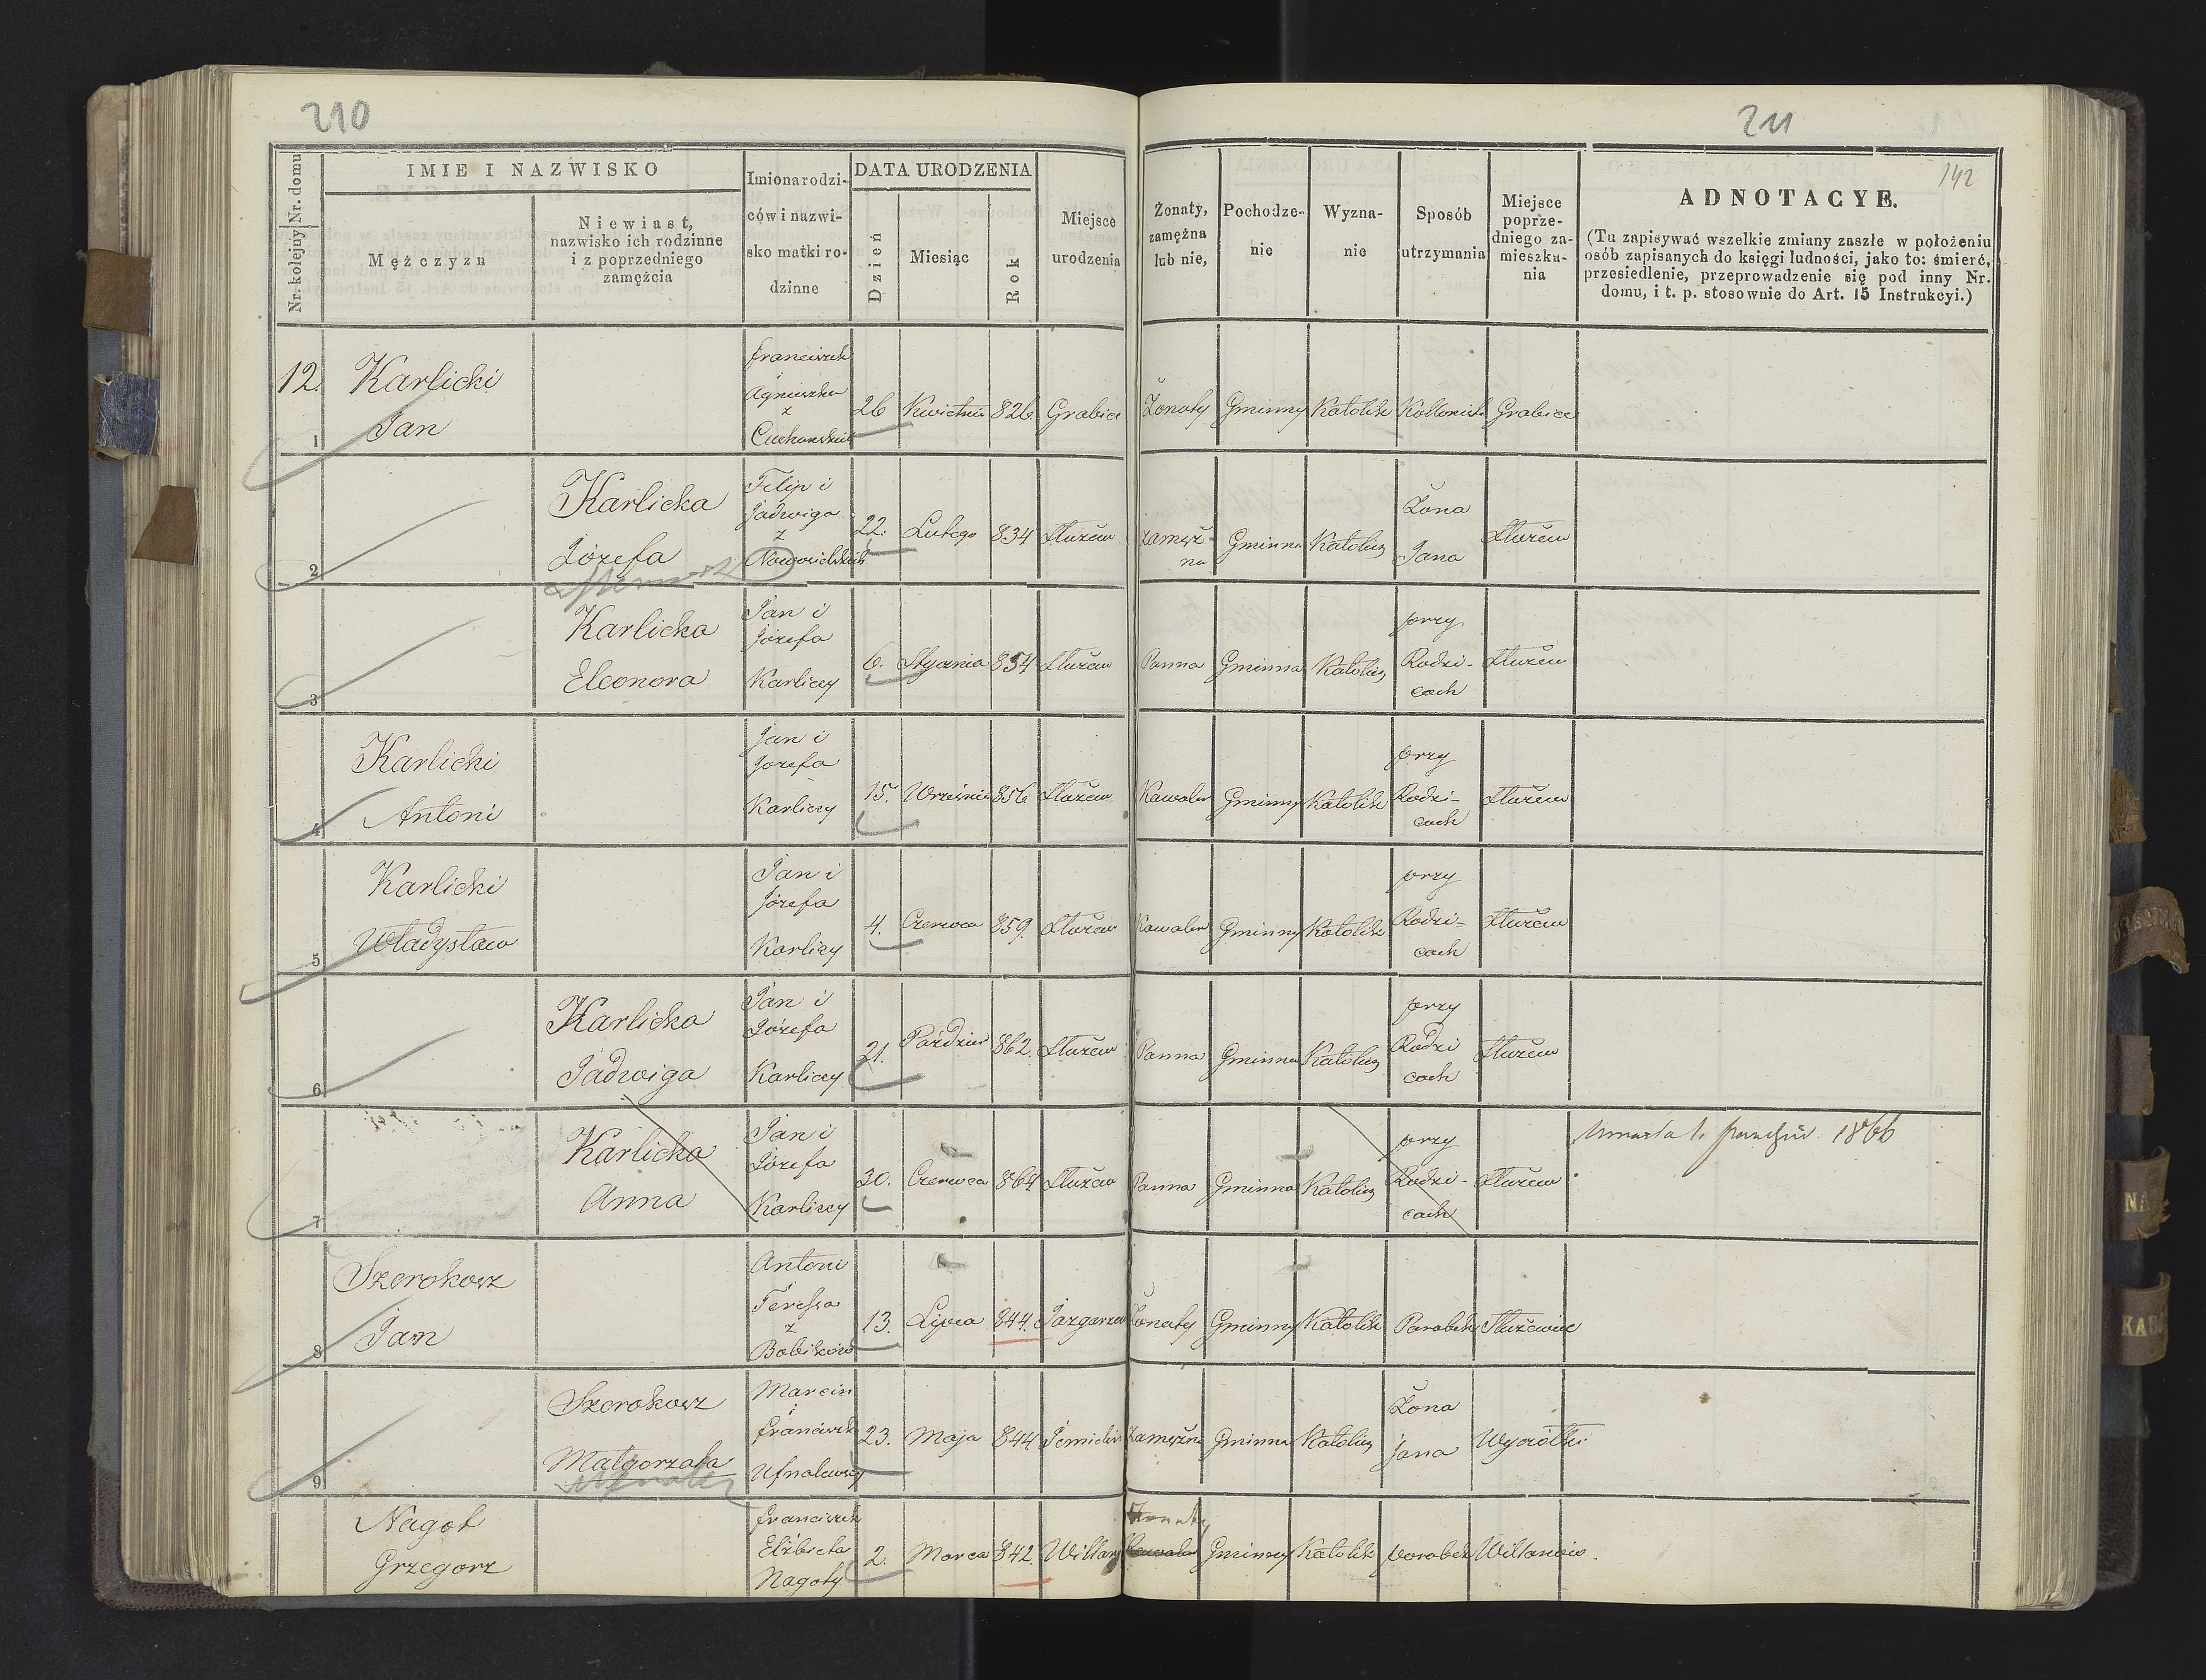 210
211
142
Nr. domu
Nr. kolejny
IMIE I NAZWISKO
Mężczyzn
Niewiast,
nazwisko ich rodzinne
i z poprzedniego
zamężcia
Imiona rodzi-
ców i nazwi-
sko matki ro-
dzinne
DATA URODZENIA
Dzień
Miesiąc
Rok
Miejsce
urodzenia
Żonaty,
zamężna
lub nie,
Pochodze-
nie
Wyzna-
nie
Sposób
utrzymania
Miejsce
poprze-
dniego za-
mieszka-
nia
ADNOTACYE.
(Tu zapisywać wszelkie zmiany zaszłe w położeniu
osób zapisanych do księgi ludności, jako to: śmierć,
przesiedlenie, przeprowadzenie się pod inny Nr.
domu, i t. p. stosownie do Art. 15 Instrukcyi.)
12.
1
Karlicki
Jan
Franciszek
i
Agnieszka
z
26 Kwietnia 826 Grabice
Żonaty Gminny Katolik Kollonista Grabice
2
Karlicka
Józefa
Filip i
Jadwiga
z
22. Lutego 834 Służew
Zamęż-
na
Gminna Katolicz
Żona
Jana
Służew
3
Karlicka
Eleonora
Jan i
Józefa
Karliccy
6. Stycznia 854 Służew
Panna Gminna Katolicz
przy
Rodzi-
cach
Służew
4
Karlicki
Antoni
Jan i
Józefa
Karliccy
15. Wrześnie 856 Służew
Kawaler Gminny Katolik
przy
Rodzi-
cach
Służew
5
Karlicki
Władysław
Jan i
Józefa
Karliccy
4. Czerwca 859. Służew
Kawaler Gminny Katolik
przy
Rodzi-
cach
Służew
6
Karlicka
Jadwiga
Jan i
Józefa
Karliccy
21. Paździer 862. Służew
Panna Gminna Katolicz
przy
Rodzi
cach
Służew
7
Karlicka
Anna
Jan i
Józefa
Karliccy
30. Czerwca 864. Służew
Panna Gminna Katolicz
przy
Rodzi-
cach
Służew
Umarła 1. 1866
8
Szerokosz
Jan
Antoni
i
Teressa
z
Bobików
13. Lipca 844. Jazgarzew
Żonaty Gminny Katolik Parobek Służewiec
9
Szerokosz
Małgorzata
Marcin
i
Franciszka
Ufnalewscy
23. Maja 844
Zamężna Gminna Katolicz
Żona
Jana
Wyczółki
Nagot
Grzegorz
Franciszek
Elżbieta
Nagoty
2. Marca 842. Willan
Żonaty
Kawaler
Gminny Katolik Parobek Willanów.